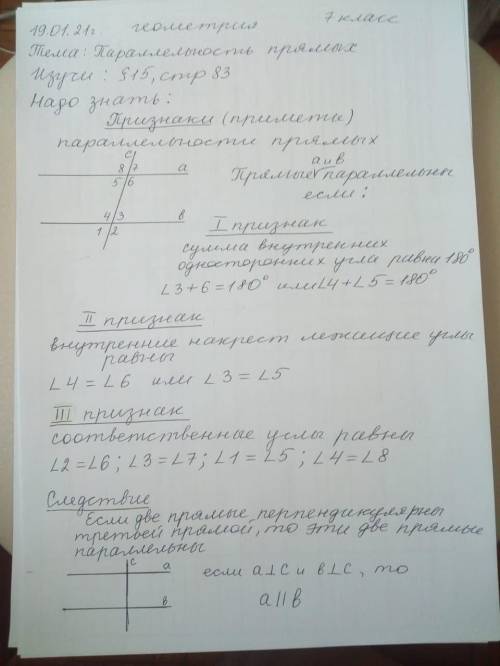 19.01.21г геометрия 7 класс
Тема: Параллельность прямых
Изучи: §15, стр 83
Надо знать:
Признаки (приметы)
параллельности прямых
c
8 7 a
5 6
4 3 в
1 2
a и в
Прямые параллельны
если:
I признак
сумма внутренних
односторонних угла равна 180°
∠3+6=180° или ∠4+∠5=180°
II признак
внутренние накрест лежащие углы
равны
∠4=∠6 или ∠3=∠5
III признак
соответственные углы равны
∠2=∠6; ∠3=∠7; ∠1=∠5; ∠4=∠8
Следствие
Если две прямые перпендикулярны
третьей прямой, то эти две прямые
параллельны
c a
в
если a⊥c и в⊥c, то
a||в